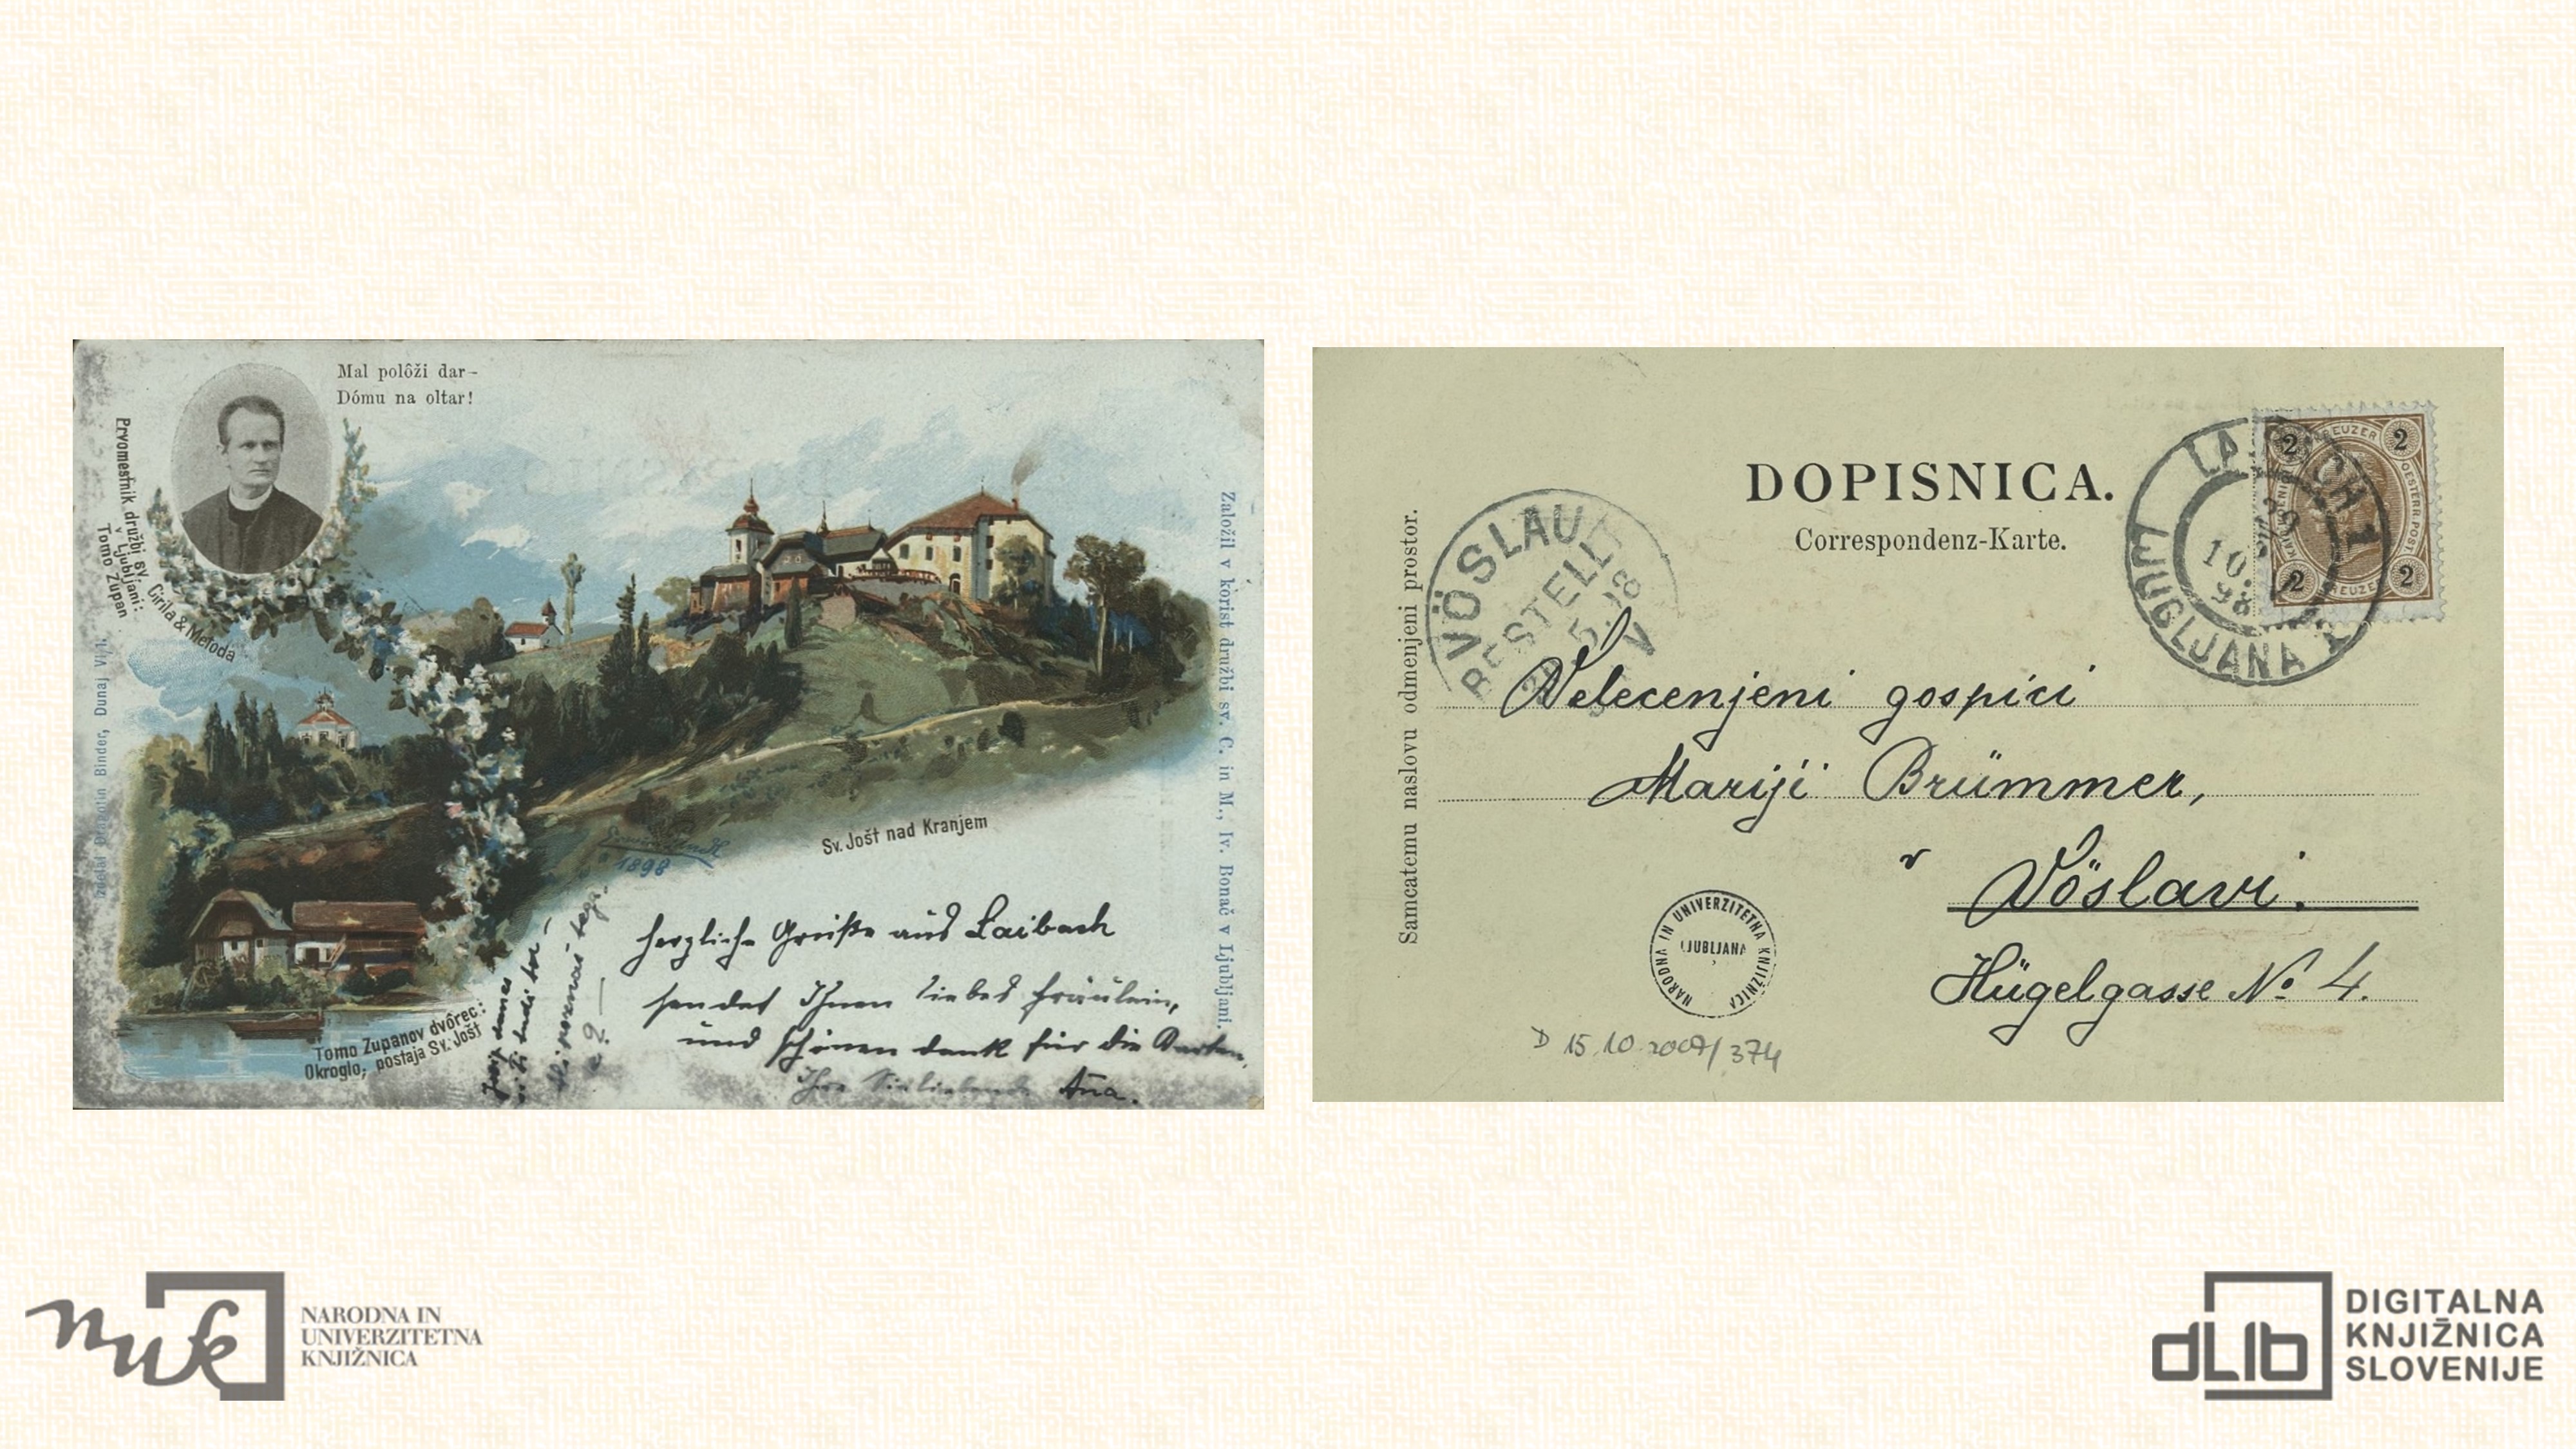 Mal polôži dar-
Dómu na oltar!
Prvomestnik družbi sv. Cirila & Metoda
v Ljubljani:
Tomo Zupan
Založil v korist družbi sv. C. in M., Iv. Bonač v Ljubljani.
Dragotin Binder, Dunaj
1898
Sv. Jošt nad Kranjem
Tomo Zupanov dvôrec:
Okroglo; postaja Sv. Jošt
herzliche Grüße aus Laibach
sendet Ihnen liebes Fräulein,
und schönen dank für die Karten.
Ihre Ana.
danes
tudi
DOPISNICA.
Correspondenz-Karte.
Samcatemu naslovu odmenjeni prostor.
VÖSLAU
BESTELLT
LAIBACH 1
LJUBLJANA 1
10.
98
2 KREUZER 2
OESTERR. POST.
2 KREUZER 2
Velecenjeni gospici
Mariji Brümmer,
v
Vöslavi.
Hügelgasse No. 4.
NARODNA IN UNIVERZITETNA KNJIŽNICA
LJUBLJANA
D 15.10.2007/374
nuk
NARODNA IN
UNIVERZITETNA
KNJIŽNICA
dLib
DIGITALNA
KNJIŽNICA
SLOVENIJE